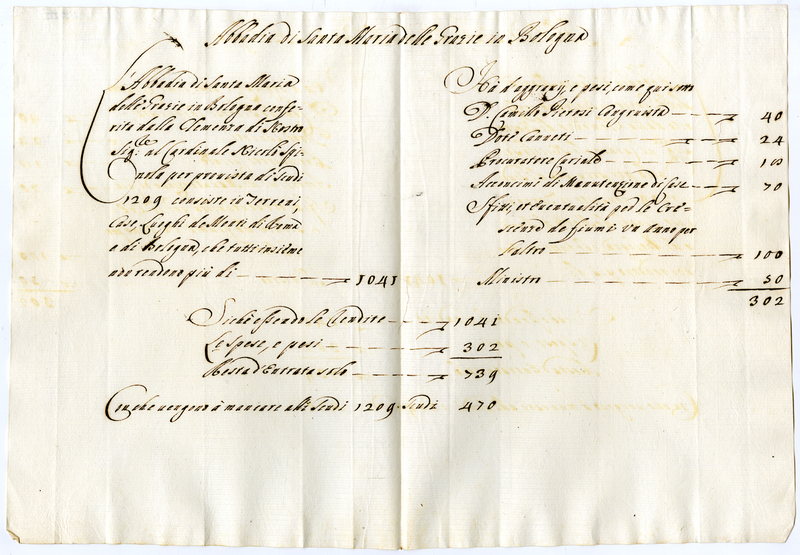 Abbadia di Santa Maria delle Grazie in Bologna
L'Abbadia di Santa Maria
delle Grazie in Bologna confe-
rita dalla Clemenza di Nostro
Sig.re al Cardinale Nicolò Spi-
nola per provista di Scudi
1209 consiste in Terreni,
Case, Luoghi de Monti di Roma
e di Bologna, che tutti insieme
non rendono più di 1041
Hà d'aggravij, e pesi, come qui sotto
D. Camillo Congruista 40
Dote Canneti 24
Procuratore Curiale 18
Acconcimi di Manutenzione di Case 70
Sfitti, et eventualità per le Cre-
scienze de fiumi un anno per
l'altro 100
Ministro 50
302
Sichè essendo le Rendite 1041
Le spese, e pesi 302
Resta d'Entrata solo 739
Onde vengono à mancare alli Scudi 1209 Scudi 470